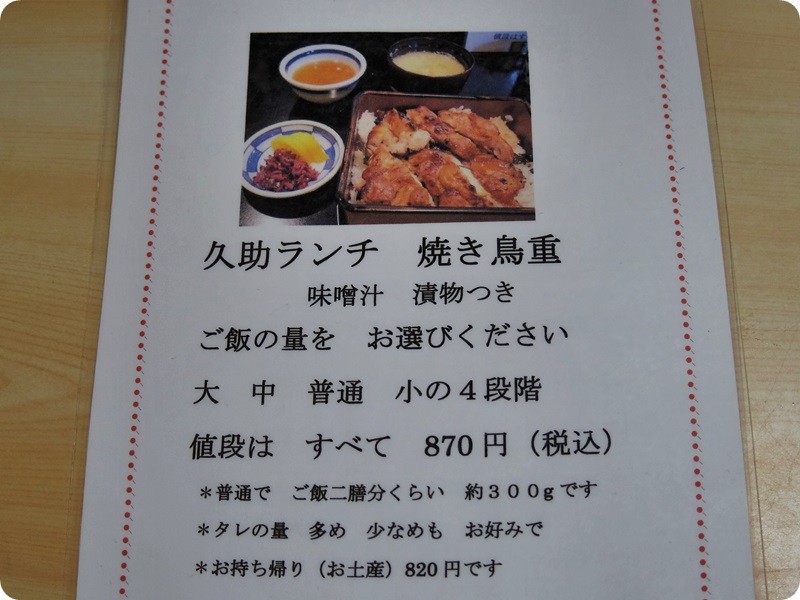 久助ランチ　焼き鳥重
味噌汁　漬物つき
ご飯の量を　お選びください
大　中　普通　小の４段階
値段は　すべて　870円（税込）
＊普通で　ご飯二膳分くらい　約３００gです
＊タレの量　多め　少なめも　お好みで
＊お持ち帰り（お土産）820円です